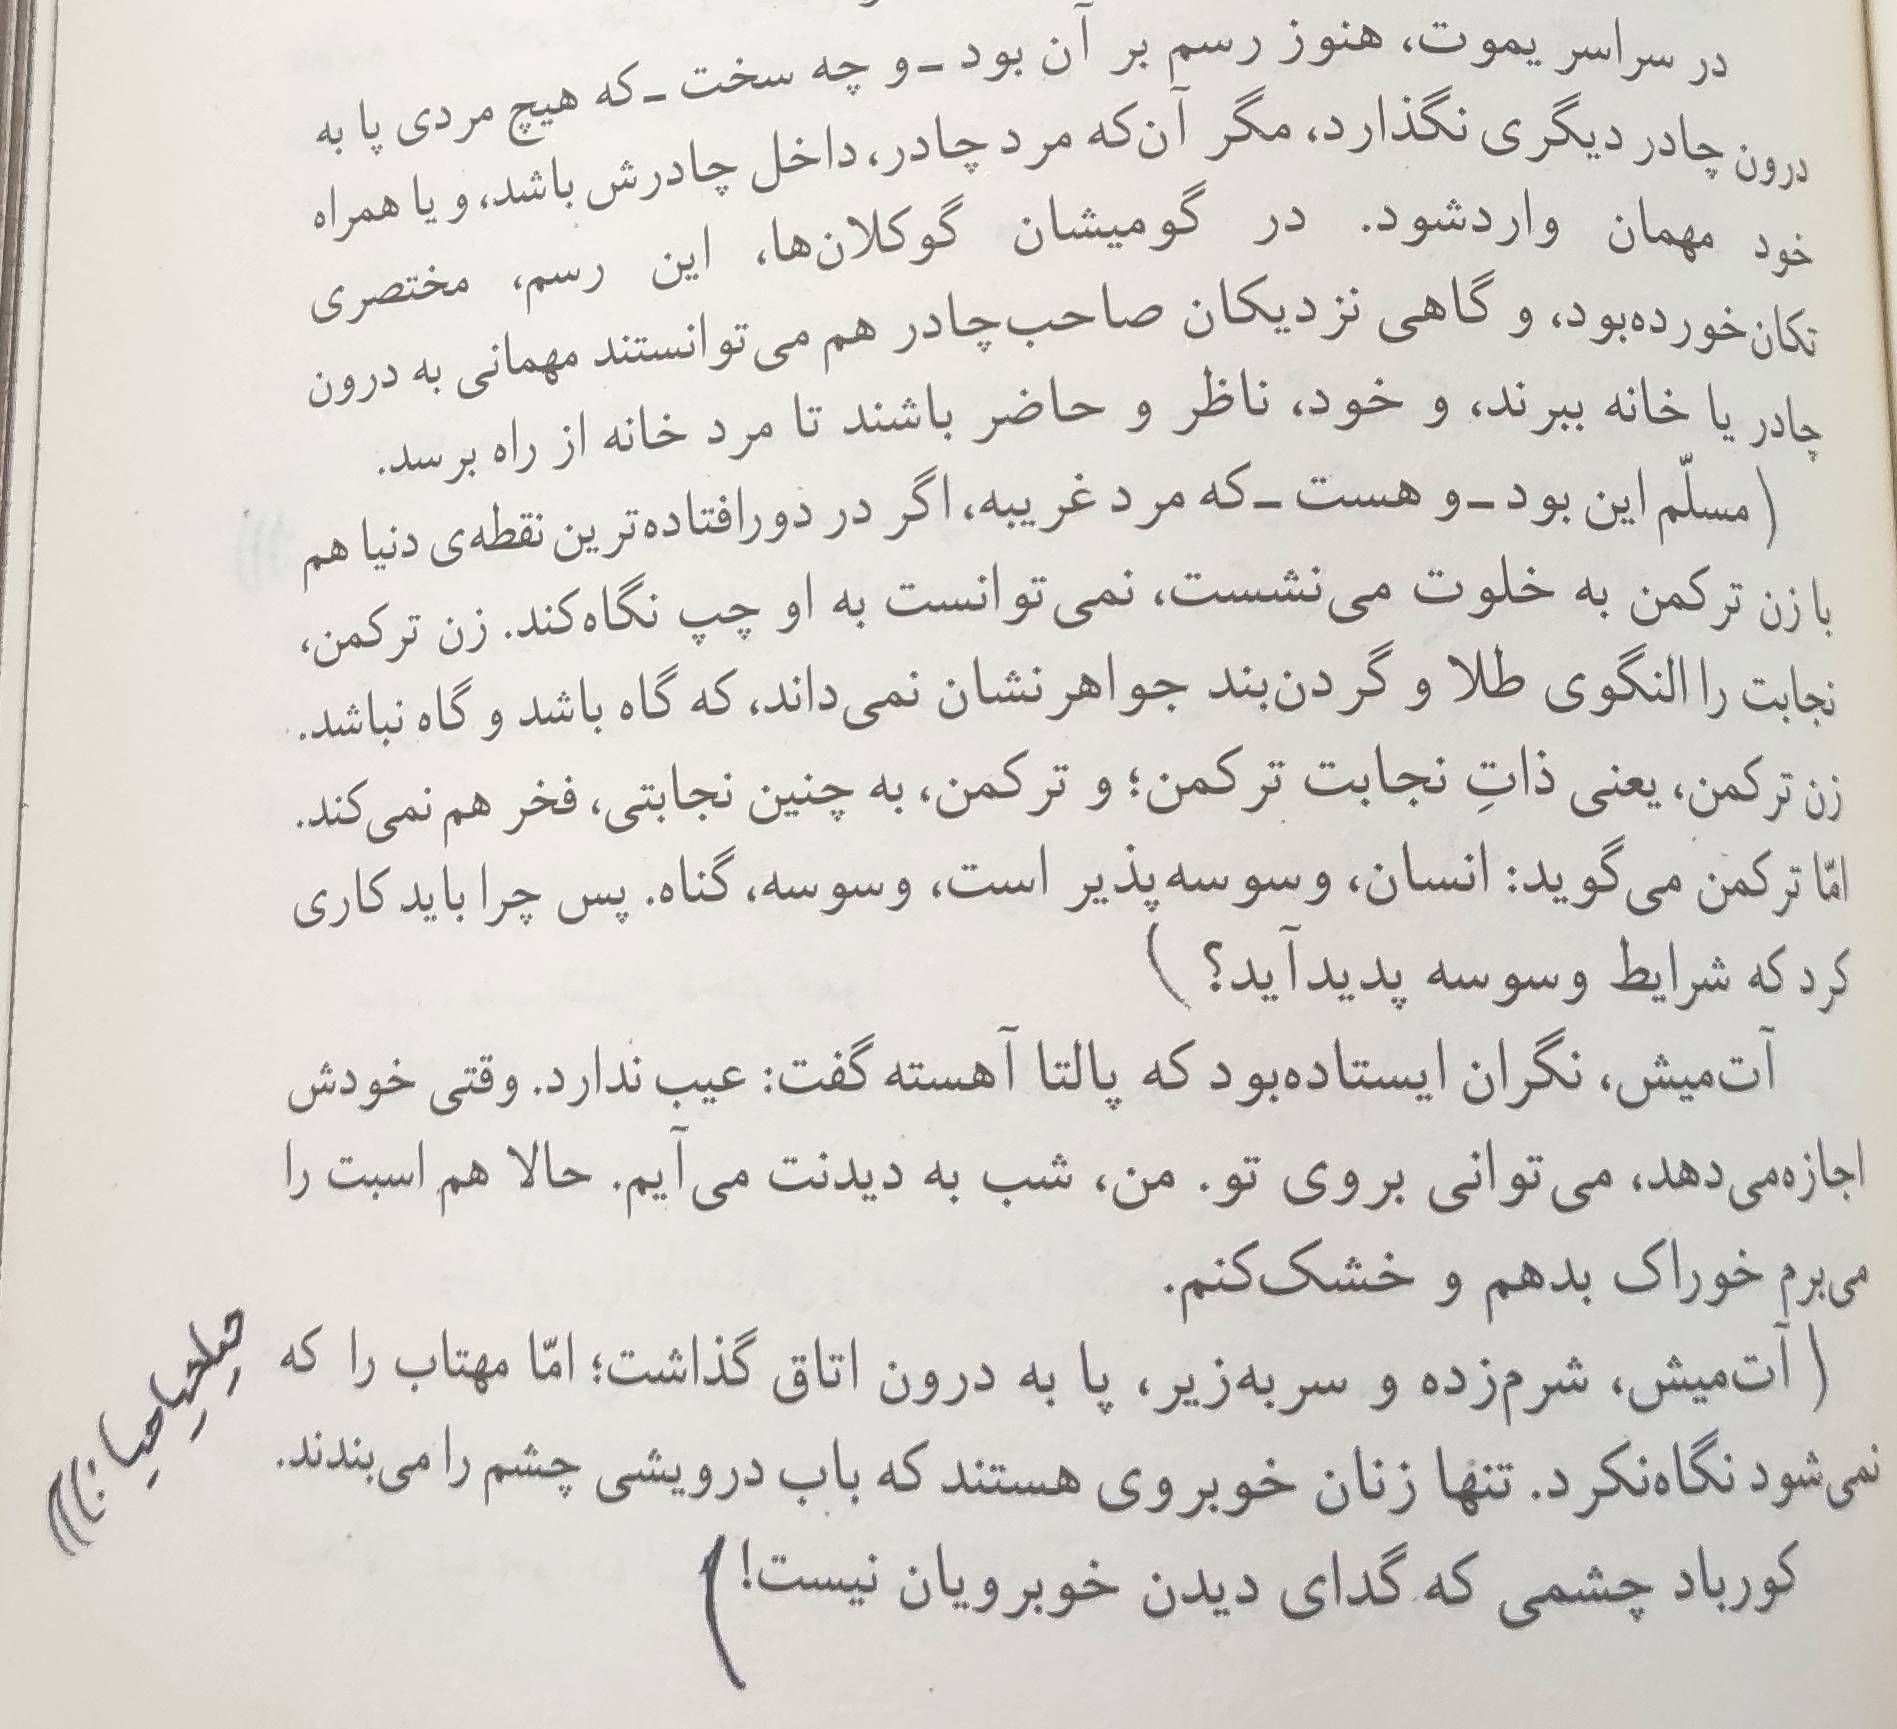 در سراسر یموت، هنوز رسم بر آن بود ـ و چه سخت ـ که هیچ مردی پا به
درون چادر دیگری نگذارد، مگر آن‌که مرد چادر، داخل چادرش باشد، و یا همراه
خود مهمان واردشود. در گومیشان گوکلان‌ها، این رسم، مختصری
تکان‌خورده‌بود، و گاهی نزدیکان صاحب‌چادر هم می‌توانستند مهمانی به درون
چادر یا خانه ببرند، و خود، ناظر و حاضر باشند تا مرد خانه از راه برسد.
(مسلّم این بود ـ و هست ـ که مرد غریبه، اگر در دورافتاده‌ترین نقطه‌ی دنیا هم
با زن ترکمن به خلوت می‌نشست، نمی‌توانست به او چپ نگاه‌کند. زن ترکمن،
نجابت را النگوی طلا و گردن‌بند جواهرنشان نمی‌داند، که گاه باشد و گاه نباشد.
زن ترکمن، یعنی ذاتِ نجابت ترکمن؛ و ترکمن، به چنین نجابتی، فخر هم نمی‌کند.
امّا ترکمن می‌گوید: انسان، وسوسه‌پذیر است، وسوسه، گناه. پس چرا باید کاری
کرد که شرایط وسوسه پدیدآید؟)
آت‌میش، نگران ایستاده‌بود که پالتا آهسته گفت: عیب ندارد. وقتی خودش
اجازه‌می‌دهد، می‌توانی بروی تو. من، شب به دیدنت می‌آیم. حالا هم اسبت را
می‌برم خوراک بدهم و خشک‌کنم.
(آت‌میش، شرم‌زده و سربه‌زیر، پا به درون اتاق گذاشت؛ امّا مهتاب را که
نمی‌شود نگاه‌نکرد. تنها زنان خوبروی هستند که باب درویشی چشم را می‌بندند.
کورباد چشمی که گدای دیدن خوبرویان نیست!)